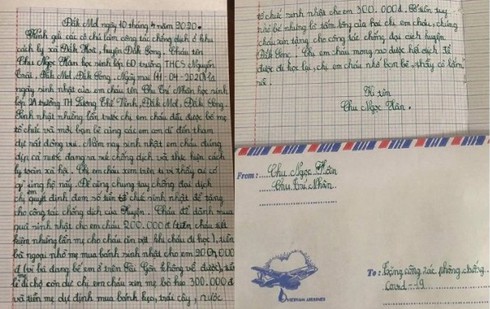 Đăk Mol, ngày 10 tháng 4 năm 2020.
Kính gửi các cô chú làm công tác chống dịch ở khu
cách ly xã Đăk Hoà, huyện Đăk Song. Cháu tên
Chu Ngọc Hân học sinh lớp 6D trường THCS Nguyễn
Trãi, Đăk Mol, Đăk Song. Ngày mai (11-04-2020) là
ngày sinh nhật của em cháu tên Chu Trí Nhân học sinh
lớp 2A trường TH Lương Thế Vinh, Đăk Mol, Đăk Song.
Sinh nhật những lần trước chị em cháu đều được bố mẹ
tổ chức và mời bạn bè cùng các em đến tham
dự rất đông vui. Năm nay sinh nhật em cháu đúng
dịp cả nước đang ra sức chống dịch và thực hiện cách
ly toàn xã hội. Chị em cháu xem trên ti vi thấy ai có
gì ủng hộ nấy. Để cùng chung tay chống đại dịch
chị em quyết định đem số tiền tổ chức sinh nhật để tặng
cho công tác chống dịch của huyện. Cháu để dành mua
quà sinh nhật cho em cháu 200.000 đ (tiền cháu tiết
kiệm những lần mẹ cho cháu ăn vặt khi cháu đi học), tiền
bà ngoại nhờ mẹ mua bánh sinh nhật cho em 200.000
đ (vì bà đang bế em ở trên Sài Gòn không về được), tiền
lì xì còn dư chị em cháu xin mẹ bỏ hai 300.000 đ
và tiền mẹ dự định mua bánh kẹo, trái cây, nước
tổ chức sinh nhật cho em 300.000 đ. Số tiền tuy
nhỏ bé nhưng là tấm lòng của hai chị em cháu, chúng
cháu xin tặng cho công tác chống đại dịch huyện
Đăk Song. Chị em cháu mong sao được hết dịch để
được đi học lại, chị em cháu nhớ bạn bè, thầy cô lắm
rồi.
Kí tên
Chu Ngọc Hân.
From: Chu Ngọc Hân
Chu Trí Nhân
VIETNAM AIRLINES
To: Tặng công tác phòng chống
Covid-19